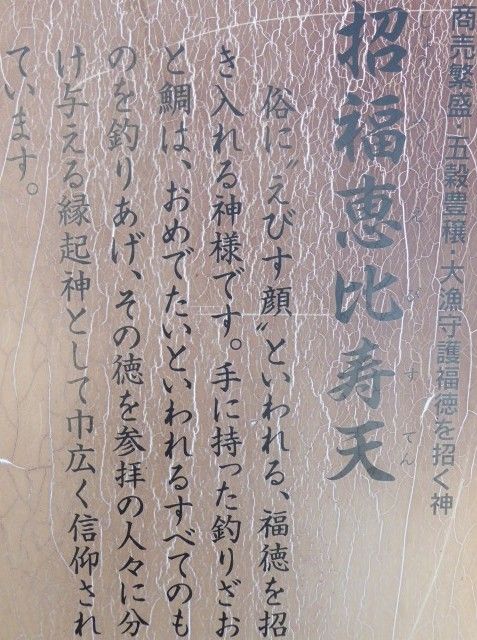 商売繁盛・五穀豊穣・大漁守護福徳を招く神
招福恵比寿天
しょうふくえびすてん
俗に〝えびす顔〟といわれる、福徳を招
き入れる神様です。手に持った釣りざお
と鯛は、おめでたいといわれるすべてのも
のを釣りあげ、その徳を参拝の人々に分
け与える縁起神として巾広く信仰され
ています。